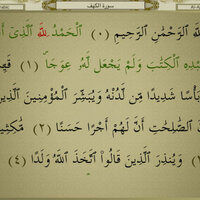 سورة الكهف
ٱللَّهِ ٱلرَّحْمَٰنِ ٱلرَّحِيمِ (٠) ٱلْحَمْدُ لِلَّهِ ٱلَّذِىٓ
ٱلْكِتَٰبَ وَلَمْ يَجْعَل لَّهُۥ عِوَجَا (١)
بَأْسًا شَدِيدًا مِّن لَّدُنْهُ وَيُبَشِّرَ ٱلْمُؤْمِنِينَ ٱلَّذِينَ
ٱلصَّٰلِحَٰتِ أَنَّ لَهُمْ أَجْرًا حَسَنًا (٢) مَّٰكِثِينَ
وَيُنذِرَ ٱلَّذِينَ قَالُوا۟ ٱتَّخَذَ ٱللَّهُ وَلَدًا (٤)